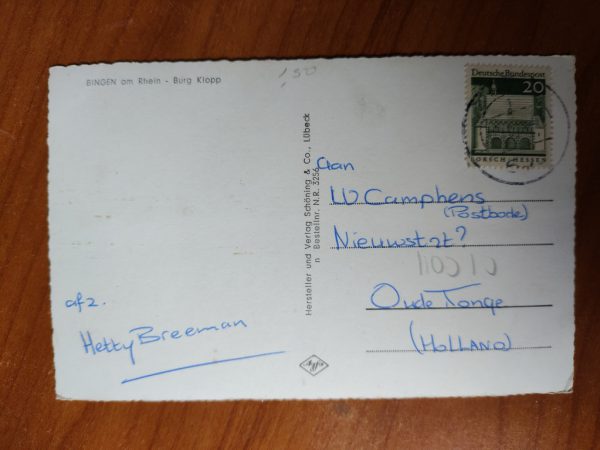 BINGEN am Rhein - Burg Klopp
Deutsche Bundespost
20
LORSCH/HESSEN
Hersteller und Verlag Schöning & Co., Lübeck
n Bestellnr. N.R. 3256
Aan
Camphens
(Postbode)
Nieuwstr?
Oude Tonge
(HOLLAND)
afz.
Hetty Breeman
Agfa